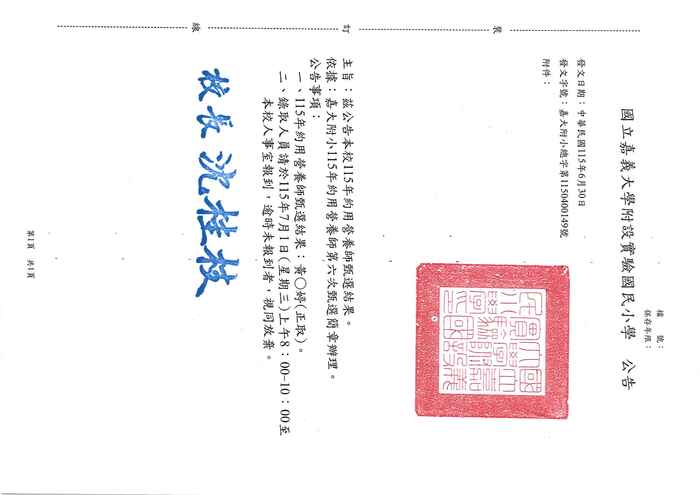 檔　號：
保存年限：
國立嘉義大學附設實驗國民小學　公告
發文日期：中華民國115年6月30日
發文字號：嘉大附小總字第1150400149號
附件：
裝
訂
線
主旨：茲公告本校115年約用營養師甄選結果。
依據：嘉大附小115年約用營養師第六次甄選簡章辦理。
公告事項：
一、115年約用營養師甄選結果：黃○婷(正取)。
二、錄取人員請於115年7月1日(星期三)上午8：00-10：00至
本校人事室報到，逾時未報到者，視同放棄。
校長 沈桂枝
第1頁　共1頁